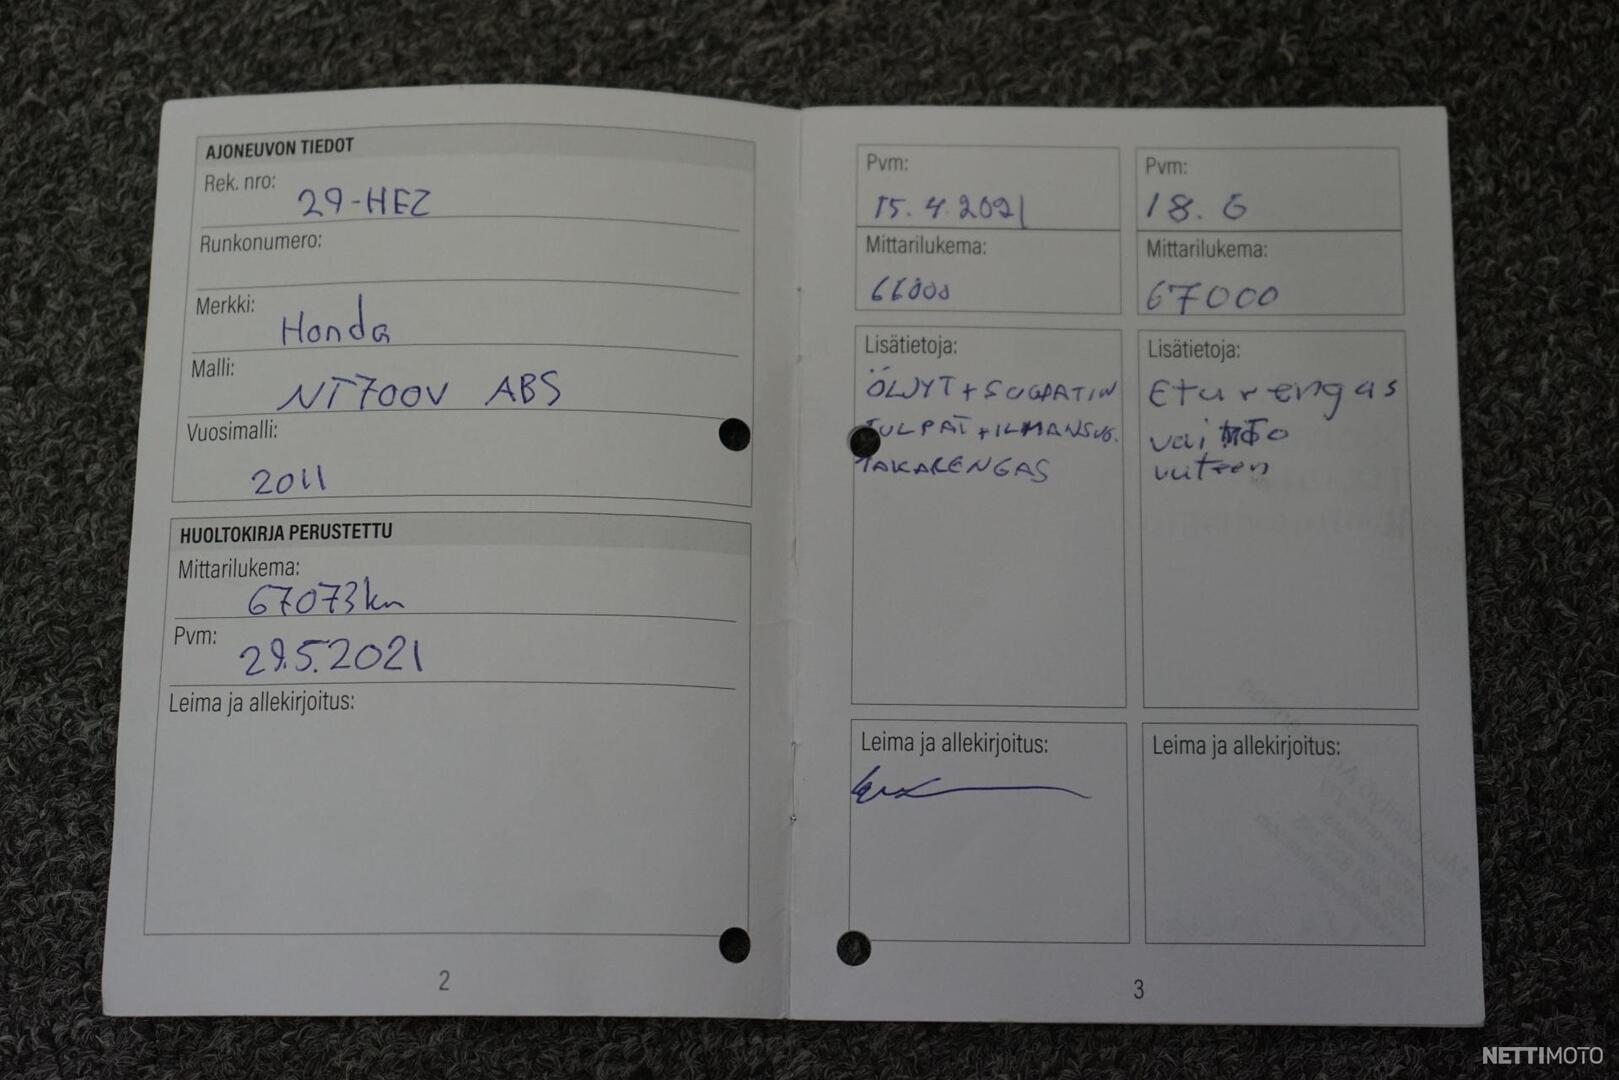 AJONEUVON TIEDOT
Rek. nro: 29-HEZ
Runkonumero:
Merkki: Honda
Malli: NT700V ABS
Vuosimalli: 2011
HUOLTOKIRJA PERUSTETTU
Mittarilukema: 67073km
Pvm: 29.5.2021
Leima ja allekirjoitus:
2
Pvm:
15.4.2021
Mittarilukema:
66000
Lisätietoja:
ÖLJYT + SUODATIN
TULPAT + ILMANSUO.
TAKARENGAS
Leima ja allekirjoitus:
Pvm:
18.6
Mittarilukema:
67000
Lisätietoja:
Eturengas
uuteen
Leima ja allekirjoitus:
3
NETTIMOTO